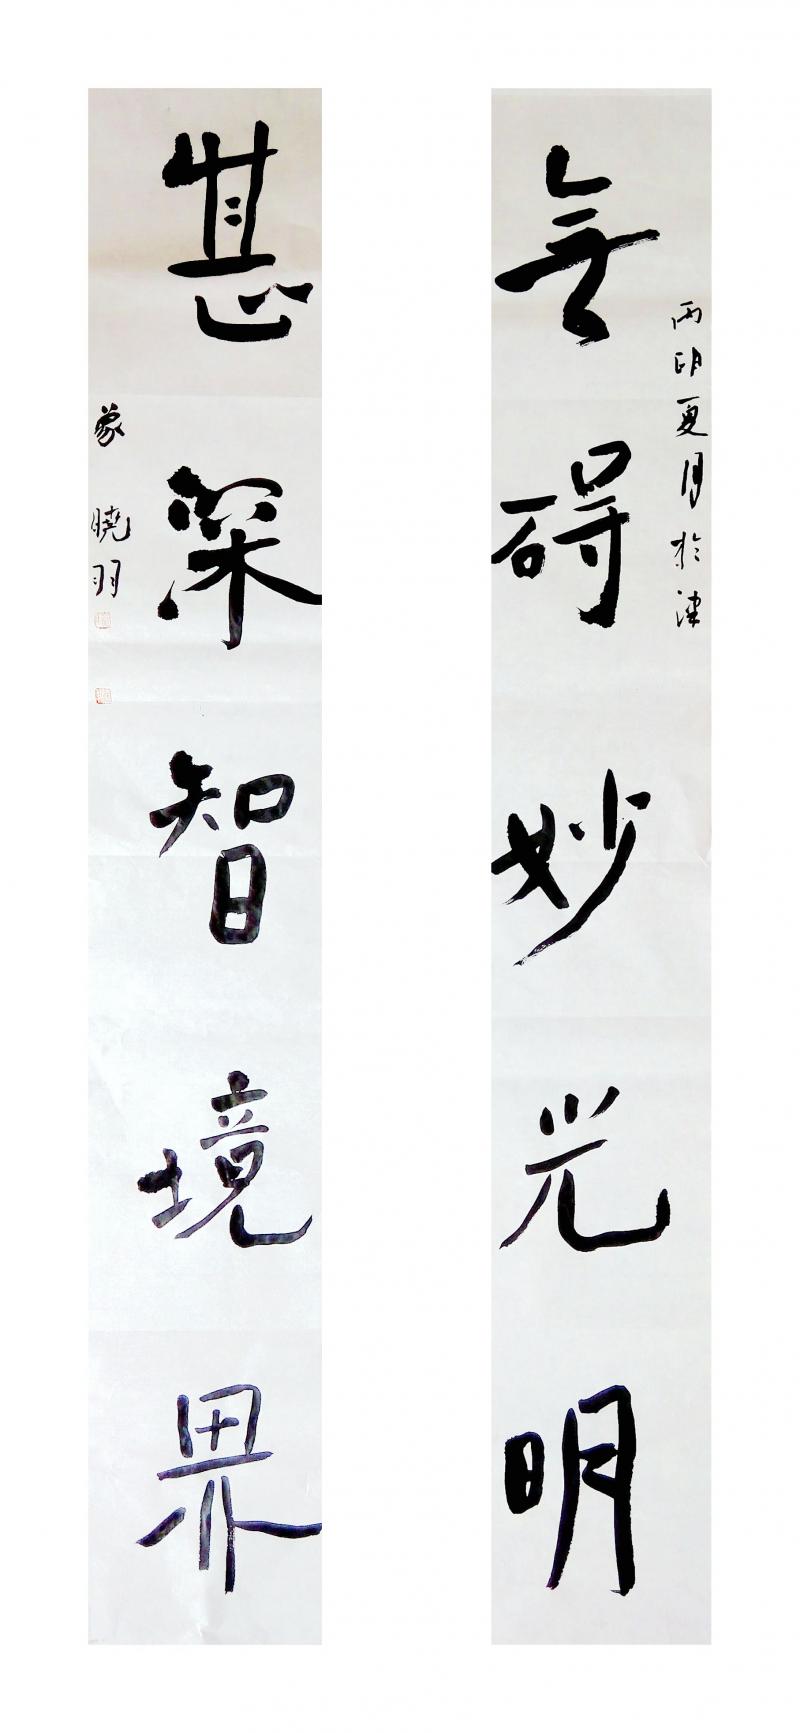 無碍妙光明
丙申夏月於津
甚深智境界
曉羽